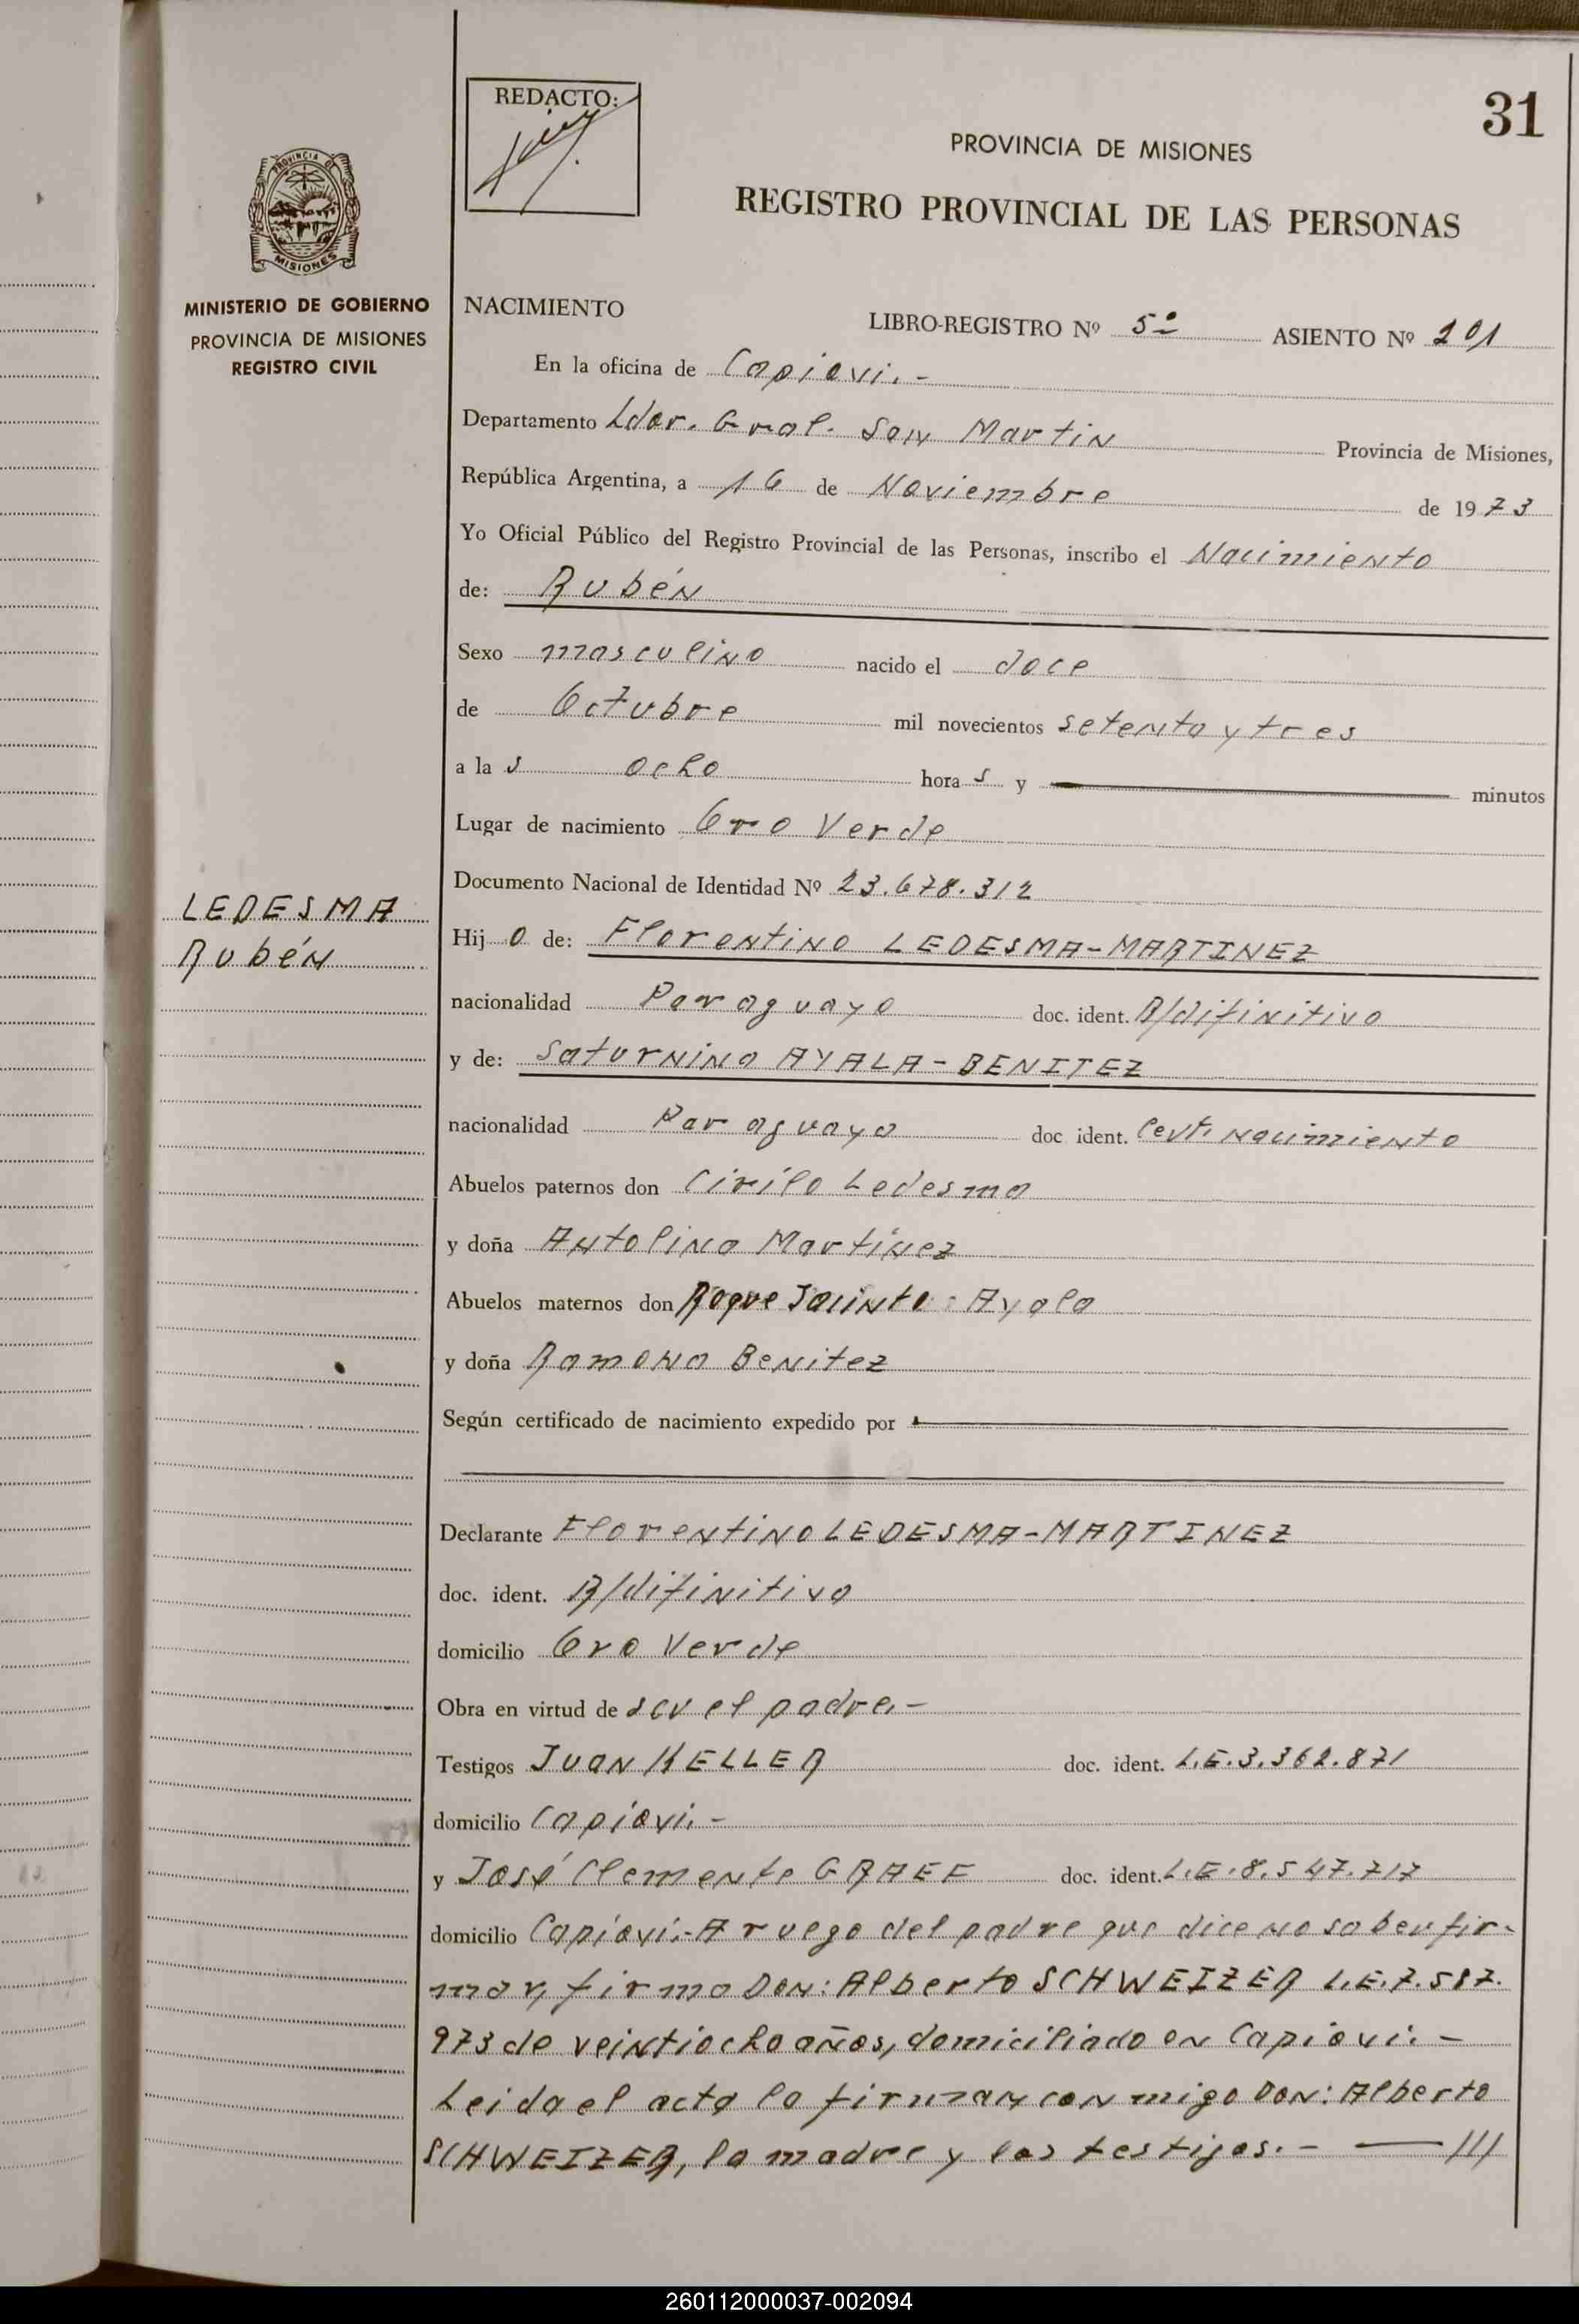 31
REDACTO:
PROVINCIA DE MISIONES
REGISTRO PROVINCIAL DE LAS PERSONAS
PROVINCIA DE
MISIONES
MINISTERIO DE GOBIERNO
PROVINCIA DE MISIONES
REGISTRO CIVIL
NACIMIENTO
LIBRO-REGISTRO Nº 5º ASIENTO Nº 201
En la oficina de Capioví.-
Departamento Ldor. Gral. San Martín Provincia de Misiones,
República Argentina, a 16 de Noviembre de 1973
Yo Oficial Público del Registro Provincial de las Personas, inscribo el Nacimiento
de: Rubén
Sexo masculino nacido el doce
de Octubre mil novecientos setenta y tres
a las ocho horas y minutos
Lugar de nacimiento Oro Verde
Documento Nacional de Identidad Nº 23.678.312
LEDESMA
Rubén
Hijo de: Florentino LEDESMA-MARTINEZ
nacionalidad Paraguayo doc. ident. R/difinitivo
y de: Saturnina AYALA-BENITEZ
nacionalidad Paraguaya doc ident. Cert. nacimiento
Abuelos paternos don Cirilo Ledesma
y doña Antolina Martínez
Abuelos maternos don Roque Jacinto Ayala
y doña Ramona Benitez
Según certificado de nacimiento expedido por
Declarante Florentino LEDESMA-MARTINEZ
doc. ident. R/difinitiva
domicilio Oro Verde
Obra en virtud de ser el padre.-
Testigos JUAN KELLER doc. ident. L.E.3.362.871
domicilio Capioví.-
y José Clemente GRAEF doc. ident. L.E.8.547.717
domicilio Capioví.-A ruego del padre que dice no saber fir-
mar, firma Don: Alberto SCHWEIZER L.E.7.587.
973 de veintiocho años, domiciliado en Capioví.-
Leida el acta la firman conmigo Don: Alberto
SCHWEIZER, la madre y los testigos.- — ///
260112000037-002094